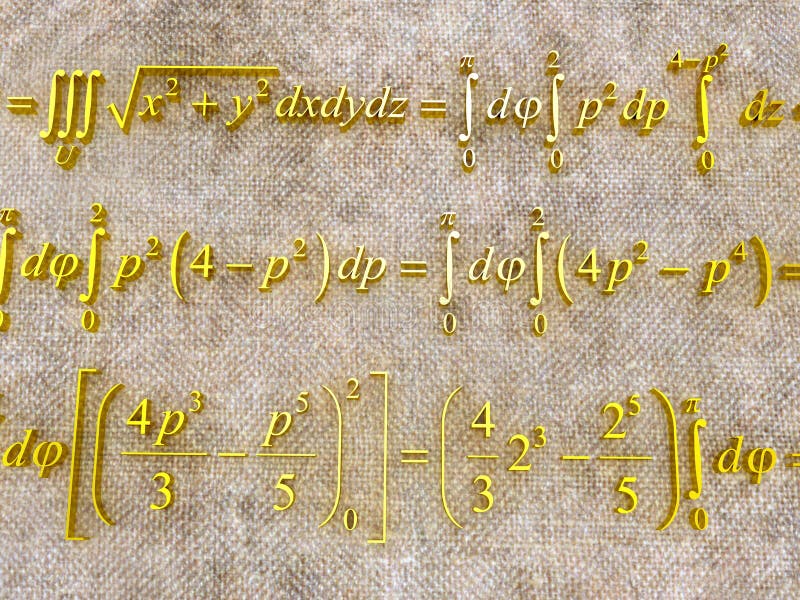 = ∭_U √(x² + y²) dxdydz = ∫₀^π dφ ∫₀² p² dp ∫₀^(4−p²) dz =
∫₀^π dφ ∫₀² p² (4 − p²) dp = ∫₀^π dφ ∫₀² (4p² − p⁴) =
dφ [(4p³/3 − p⁵/5)₀²] = (4/3 2³ − 2⁵/5) ∫₀^π dφ =